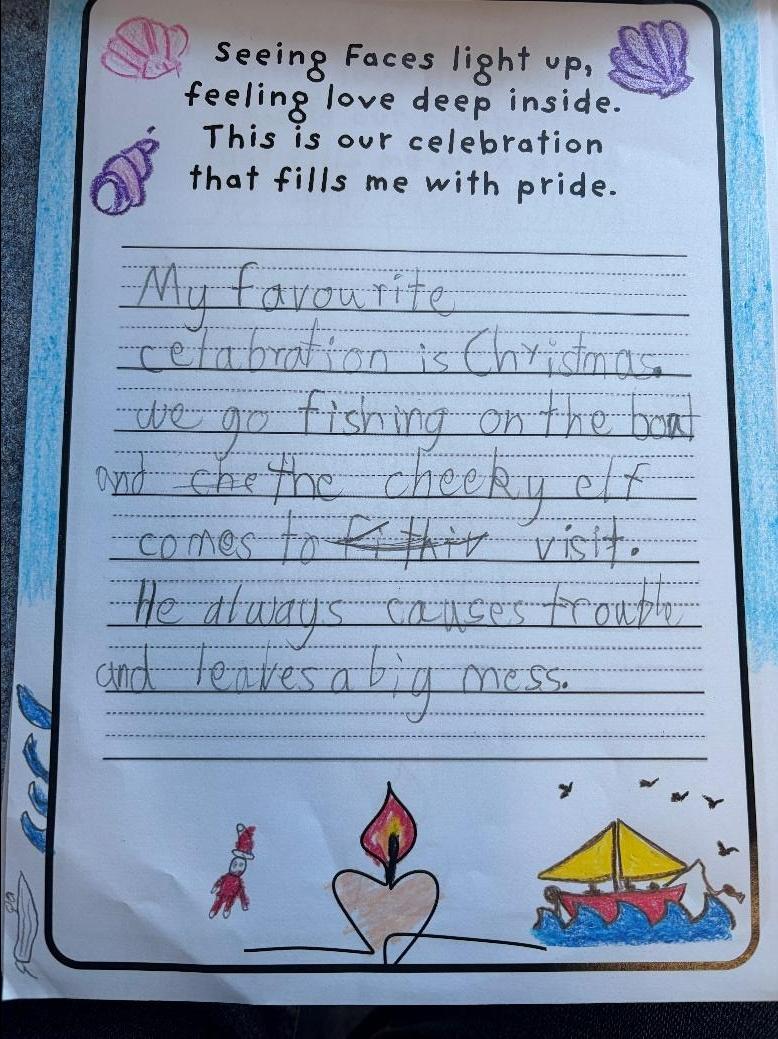 Seeing Faces light up,
feeling love deep inside.
This is our celebration
that fills me with pride.
My favourite
celabration is Christmas.
we go fishing on the boat
and che the cheeky elf
comes to visit.
He always causes trouble
and leaves a big mess.